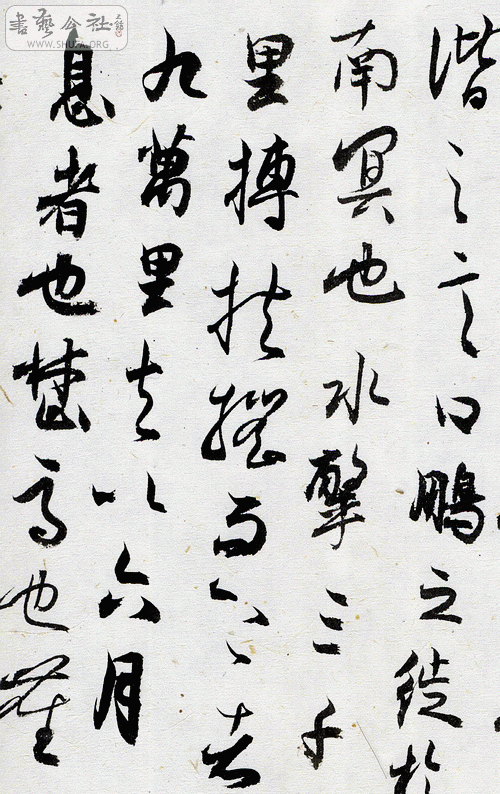 書藝公社
WWW.SHUFA.ORG
諧之言曰鵬之徙於
南冥也水擊三千
里摶扶搖而上者
九萬里去以六月
息者也埜馬也塵